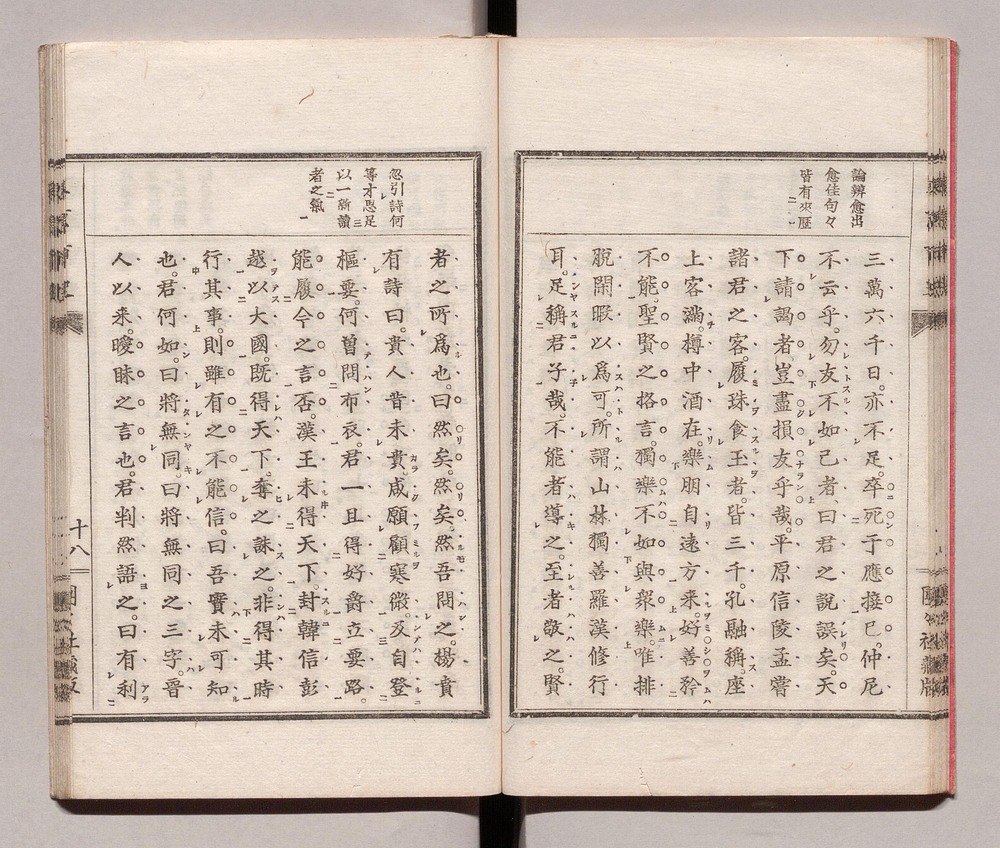 論辨愈出
愈佳句々
皆有來歷
三萬六千日。亦不足。卒死于應接已。仲尼
不云乎。勿友不如己者。曰君之說誤矣。天
下請謁者。豈盡損友乎哉。平原信陵孟嘗
諸君之客。履珠食玉者。皆三千。孔融稱。座
上客滿。樽中酒在。樂朋自遠方來。好善矜
不能。聖賢之格言。獨樂不如與衆樂。唯排
脱閑暇以爲可。所謂山林獨善羅漢修行
耳。足稱君子哉。不能者導之。至者敬之。賢
忽引詩何
等才思足
以一新讀
者之氣
者之所爲也。曰然矣。然矣。然吾問之。楊賁
有詩曰。貴人昔未貴。咸願顧寒微。及自登
樞要。何曽問布衣。君一旦得好爵立要路。
能履今之言否。漢王未得天下。封韓信彭
越以大國。既得天下。奪之誅之。非得其時
行其事。則雖有之不能信。曰吾實未可知
也。君何如。曰將無同。曰將無同之三字。晉
人以來。曖昧之言也。君判然語之。曰有利
十八